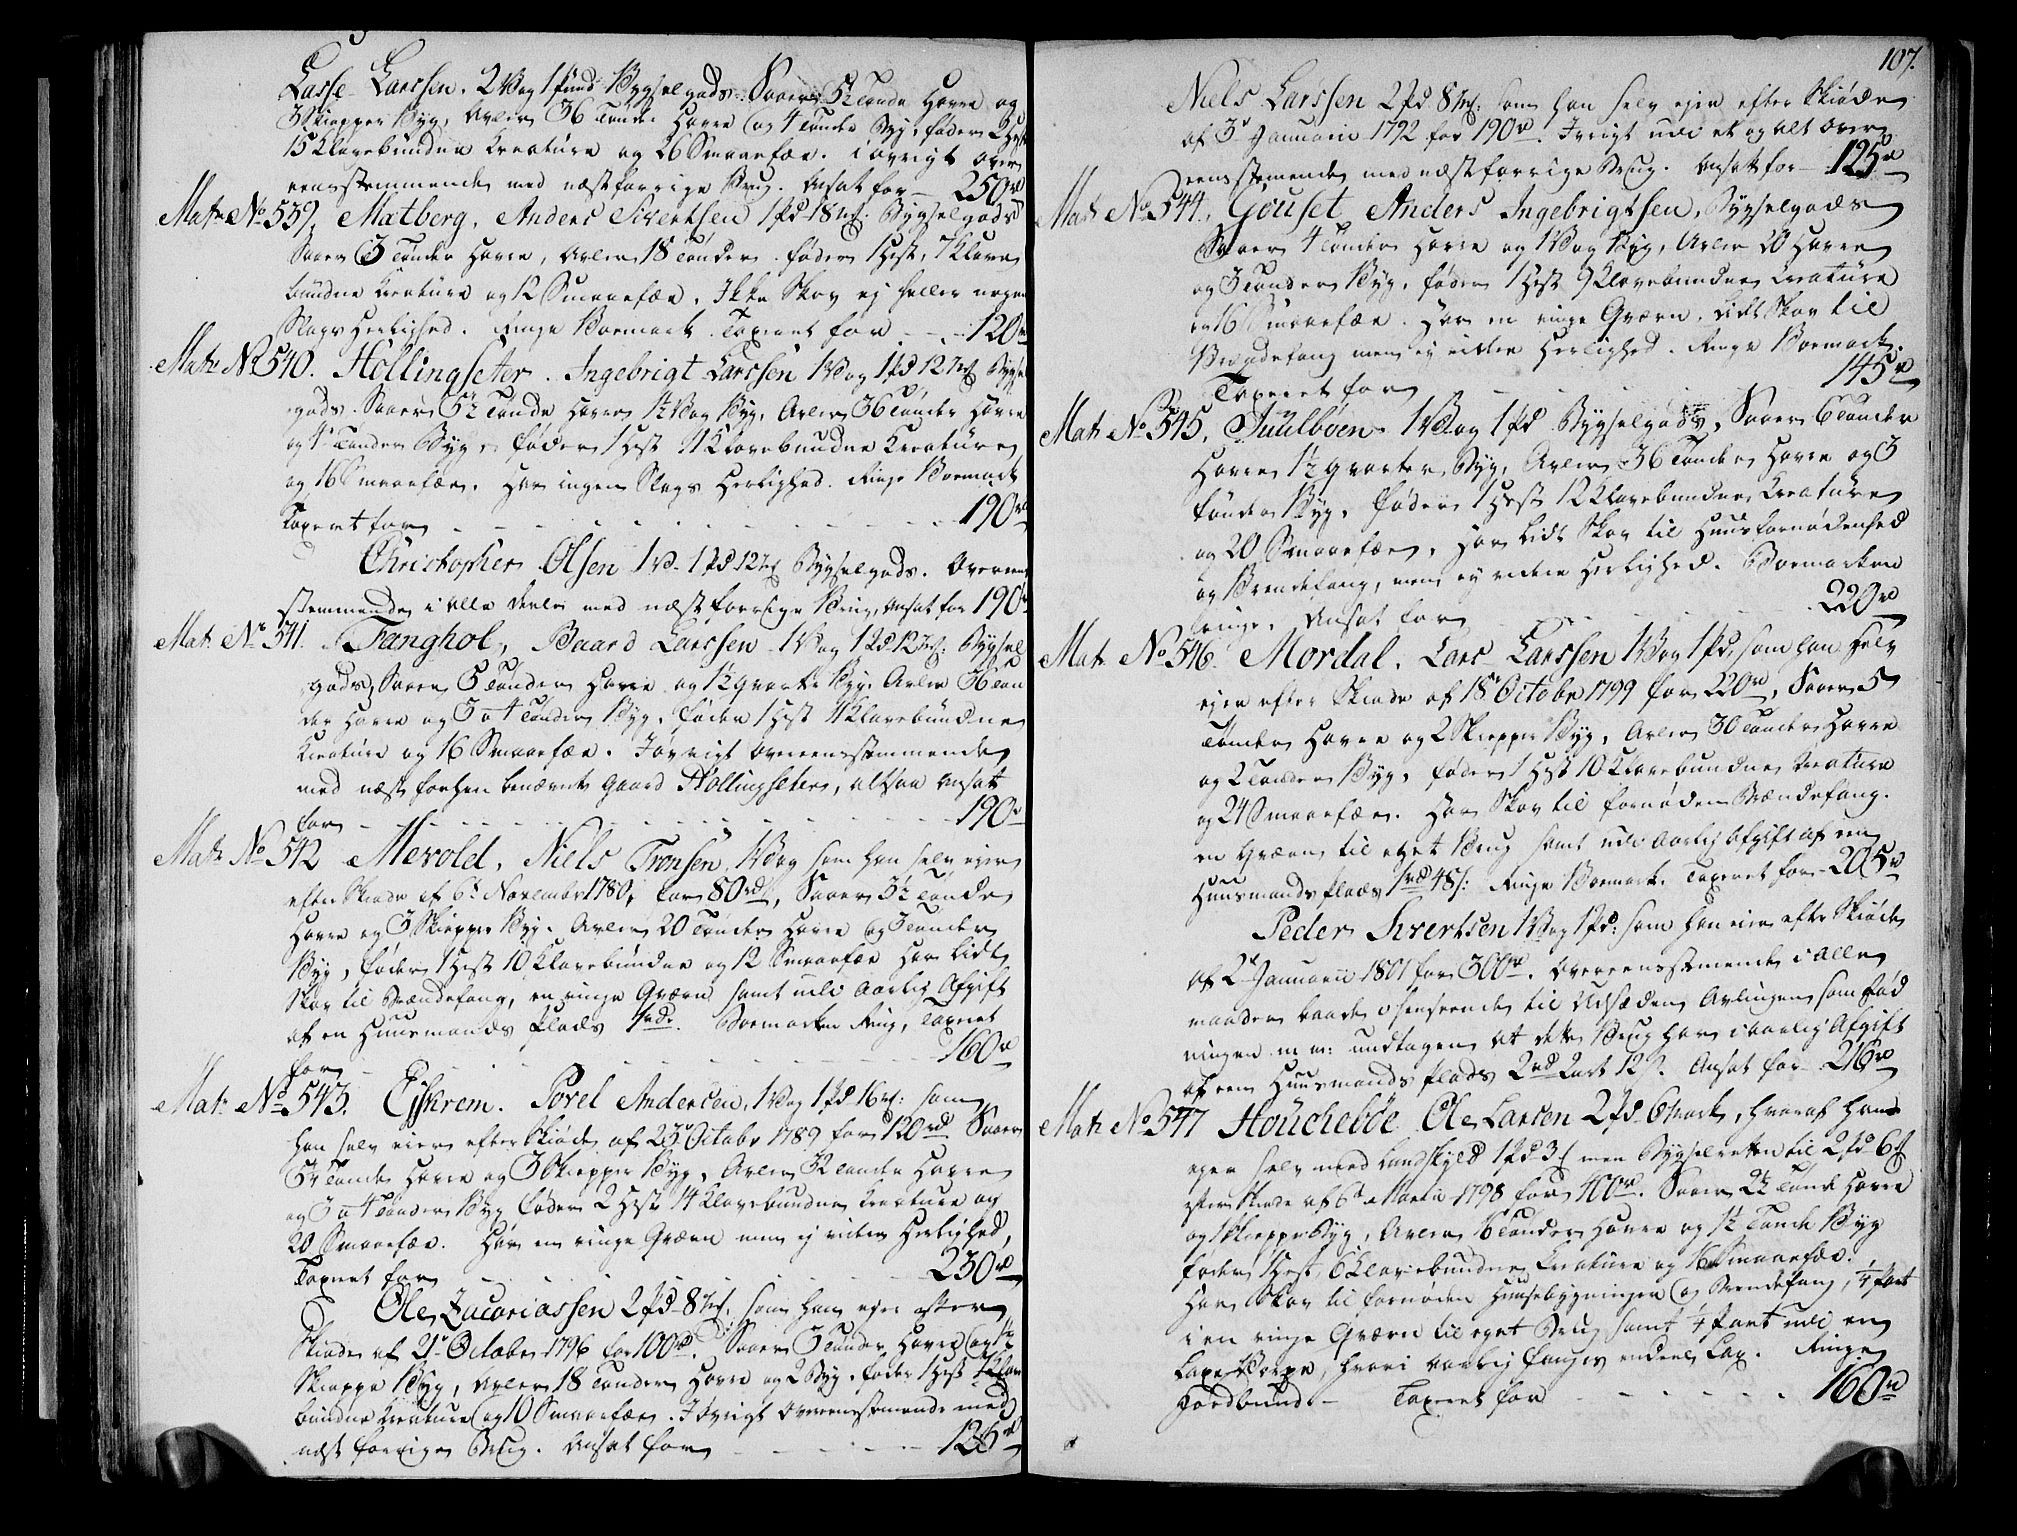 Lasse Larssen. 2 Vog 1 pund Bygselgods. Saaer 5½ Tønde Havre og
3 Skiepper Byg, Avler 36 Tønder Havre og 4 Tønde Byg, føder 2 Heste
15 Klavebundne Kreature og 26 Smaafæe. i øvrigt over
eensstemmende med næstforrige Brug. Ansat for - 250 rd
Matr No 539, Matberg, Anders Sivertsen 1 Pd 18 mk. Bygselgods
Saaer 3 Tønder Havre, Avler 18 Tønder. føder 1 Hest, 7 Klave
bundne Kreature og 12 Smaafæe. Ikke Skov ej heller nogen
Slags Herlighed. Ringe Boemark. Taxeret for - - - 120 rd
Matr No 540. Hollingseter. Ingebrigt Larssen 1 Vog 1 Pd 12 mk Bygsel
gods. Saaer 5½ Tønde Havre 1½ Vog Byg, Avler 36 Tønder Havre
og 4 Tønder Byg, føder 1 Hest 11 Klavebundne Kreature
og 16 Smaafæe. Har ingen Slags Herlighed. Ringe Boemark
Taxeret for - - - 190 rd
Christopher Olsen 1 V. 1 Pd 12 mk Bygselgods. Overeens
stemmende i alle Deele med næstforrige Brug, Ansat for 190 rd
Matr No 541. Tanghol, Baard Larssen 1 Vog 1 Pd 12 mk. Bygsel
gods, Saaer 5 Tønder Havre og 1½ qvarter Byg, Avler 36 Tøn
der Havre og 3 a 4 Tønder Byg, føder 1 Hest 11 Klavebundne
Kreature og 16 Smaafæe. I øvrigt overeensstemmende
med næst forhen benævnte Gaard Hollingseter, altsaa Ansat
for - - - 190 rd
Matr No 542 Mevold, Niels Tronsen, 1 Vog som han selv ejer
efter Skiøde af 6te November 1780, for 80 rd, Saaer 3½ Tønde
Havre og 3 Skiepper Byg. Avler 20 Tønder Havre og 3 Tønder
Byg, føder 1 Hest 10 Klavebundne og 12 Smaafæe Har Lidt
Skov til Brændefang, en ringe Qværn samt udi Aarlig Afgift
af en Huusmands Plads 1 rd. Boemarken Ring, Taxeret
for - - - 160 rd
Matr No 543. Ejskrem. Povel Andersen, 1 Vog 1 Pd 16 mk: som
han selv eier efter Skiøde af 23de October 1789 for 120 rd Saaer
5½ Tønde Havre og 3 Skiepper Byg, Avler 32 Tønder Havre
og 3 a 4 Tønder Byg føder 2 Heste 14 Klavebundne Kreature og
20 Smaafæe. Har en ringe Qværn men ej viidere Herlighed,
Taxeret for - - - 230 rd
Ole Zacariassen 2 Pd 8 mk. som han ejer efter
Skiøde af 21de October 1796 for 100 rd. Saaer 3 Tønder Havre og 1½
Skieppe Byg, Avler 18 Tønder Havre og 2 Byg, føder 1 Hest 7 Klave
bundne Kreature og 10 Smaafæe. I øvrigt overeensstemmende med
næst forrige Brug. Ansat for - - - 126 rd
107.
Niels Larssen 2 Pd 8 mk. som han selv ejer efter Skiøde
af 3de Januarii 1792 for 190 rd. I øvrigt udi et og alt over
eensstemmende med næstforrige Brug. Ansat for - 125 rd
Matr No 544, Gouset, Anders Ingebrigtsen, Bygselgods
Saaer 4 Tønder Havre og 1 Vog Byg, Avler 20 Havre
og 3 Tønder Byg, føder 1 Hest 9 Klavebundne Kreature
og 16 Smaafæe. Har en ringe Qværn. Lidt Skov til
Brændefang men ej viidere Herlighed. Ringe Boemark.
Taxeret for - - - 145 rd
Matr No 545, Juulbøen 1 Vog 1 Pd Bygselgods, Saaer 6 Tønder
Havre 1½ qvarter Byg, Avler 36 Tønder Havre og 3
Tønder Byg, føder 1 Hest 12 Klavebundne Kreature
og 20 Smaafæe, Har Lidt Skov til Huusfornødenhed
og Brændefang, men ej videre Herlighed. Boemarken
ringe, Ansat for - - - 220 rd
Matr No 546. Mordal. Lars Larssen 1 Vog 1 Pd, som han selv
ejer efter Skiøde af 18de October 1799 for 220 rd, Saaer 5
Tønder Havre og 2 Skiepper Byg, Avler 30 Tønder Havre
og 2 Tønder Byg, føder 1 Hest 10 Klavebundne Kreature
og 24 Smaafæe. Har Skov til fornøden Brændefang.
en Qværn til eget Brug samt udi Aarlig Afgift af en
Huusmands Plads 1 rd 48 s: Ringe Boemark. Taxeret for - 205 rd
Peder Sivertsen 1 Vog 1 Pd: som han eier efter Skiøde
af 2de Januarii 1801 for 300 rd. Overeensstemmende i alle
maader baade henseende til Udsæden Avlingen som Fød
ningen m m: undtagen at dette Brug har i aarlig Afgift
af een Huusmands Plads 2 rd 2 ort 12 s. Ansat for - 216 rd
Matr No 547 Houcheböe Ole Larsen 2 Pd 6 Mark, hvoraf han
egen selv med Landskyld 1 Pd 3 mk men Bygselretten til 2 Pd 6 mk
efter Skiøde af 6te Martii 1798 for 400 rd. Saaer 2½ Tønde Havre
og 1 Skieppe Byg, Avler 16 Tønder Havre og 1½ Tønde Byg
føder 1 Hest, 6 Klavebundne Kreature og 16 Smaafæe.
Har Skov til fornøden Huusebygningen og Brændefang, ¼ Part
i en ringe Qværn til eget Brug samt ¼ Part udi en
Laxe Vorpe, hvori Aarlig fanges endeel Lax. Ringe
Jordbund - Taxeret for - - - 160 rd